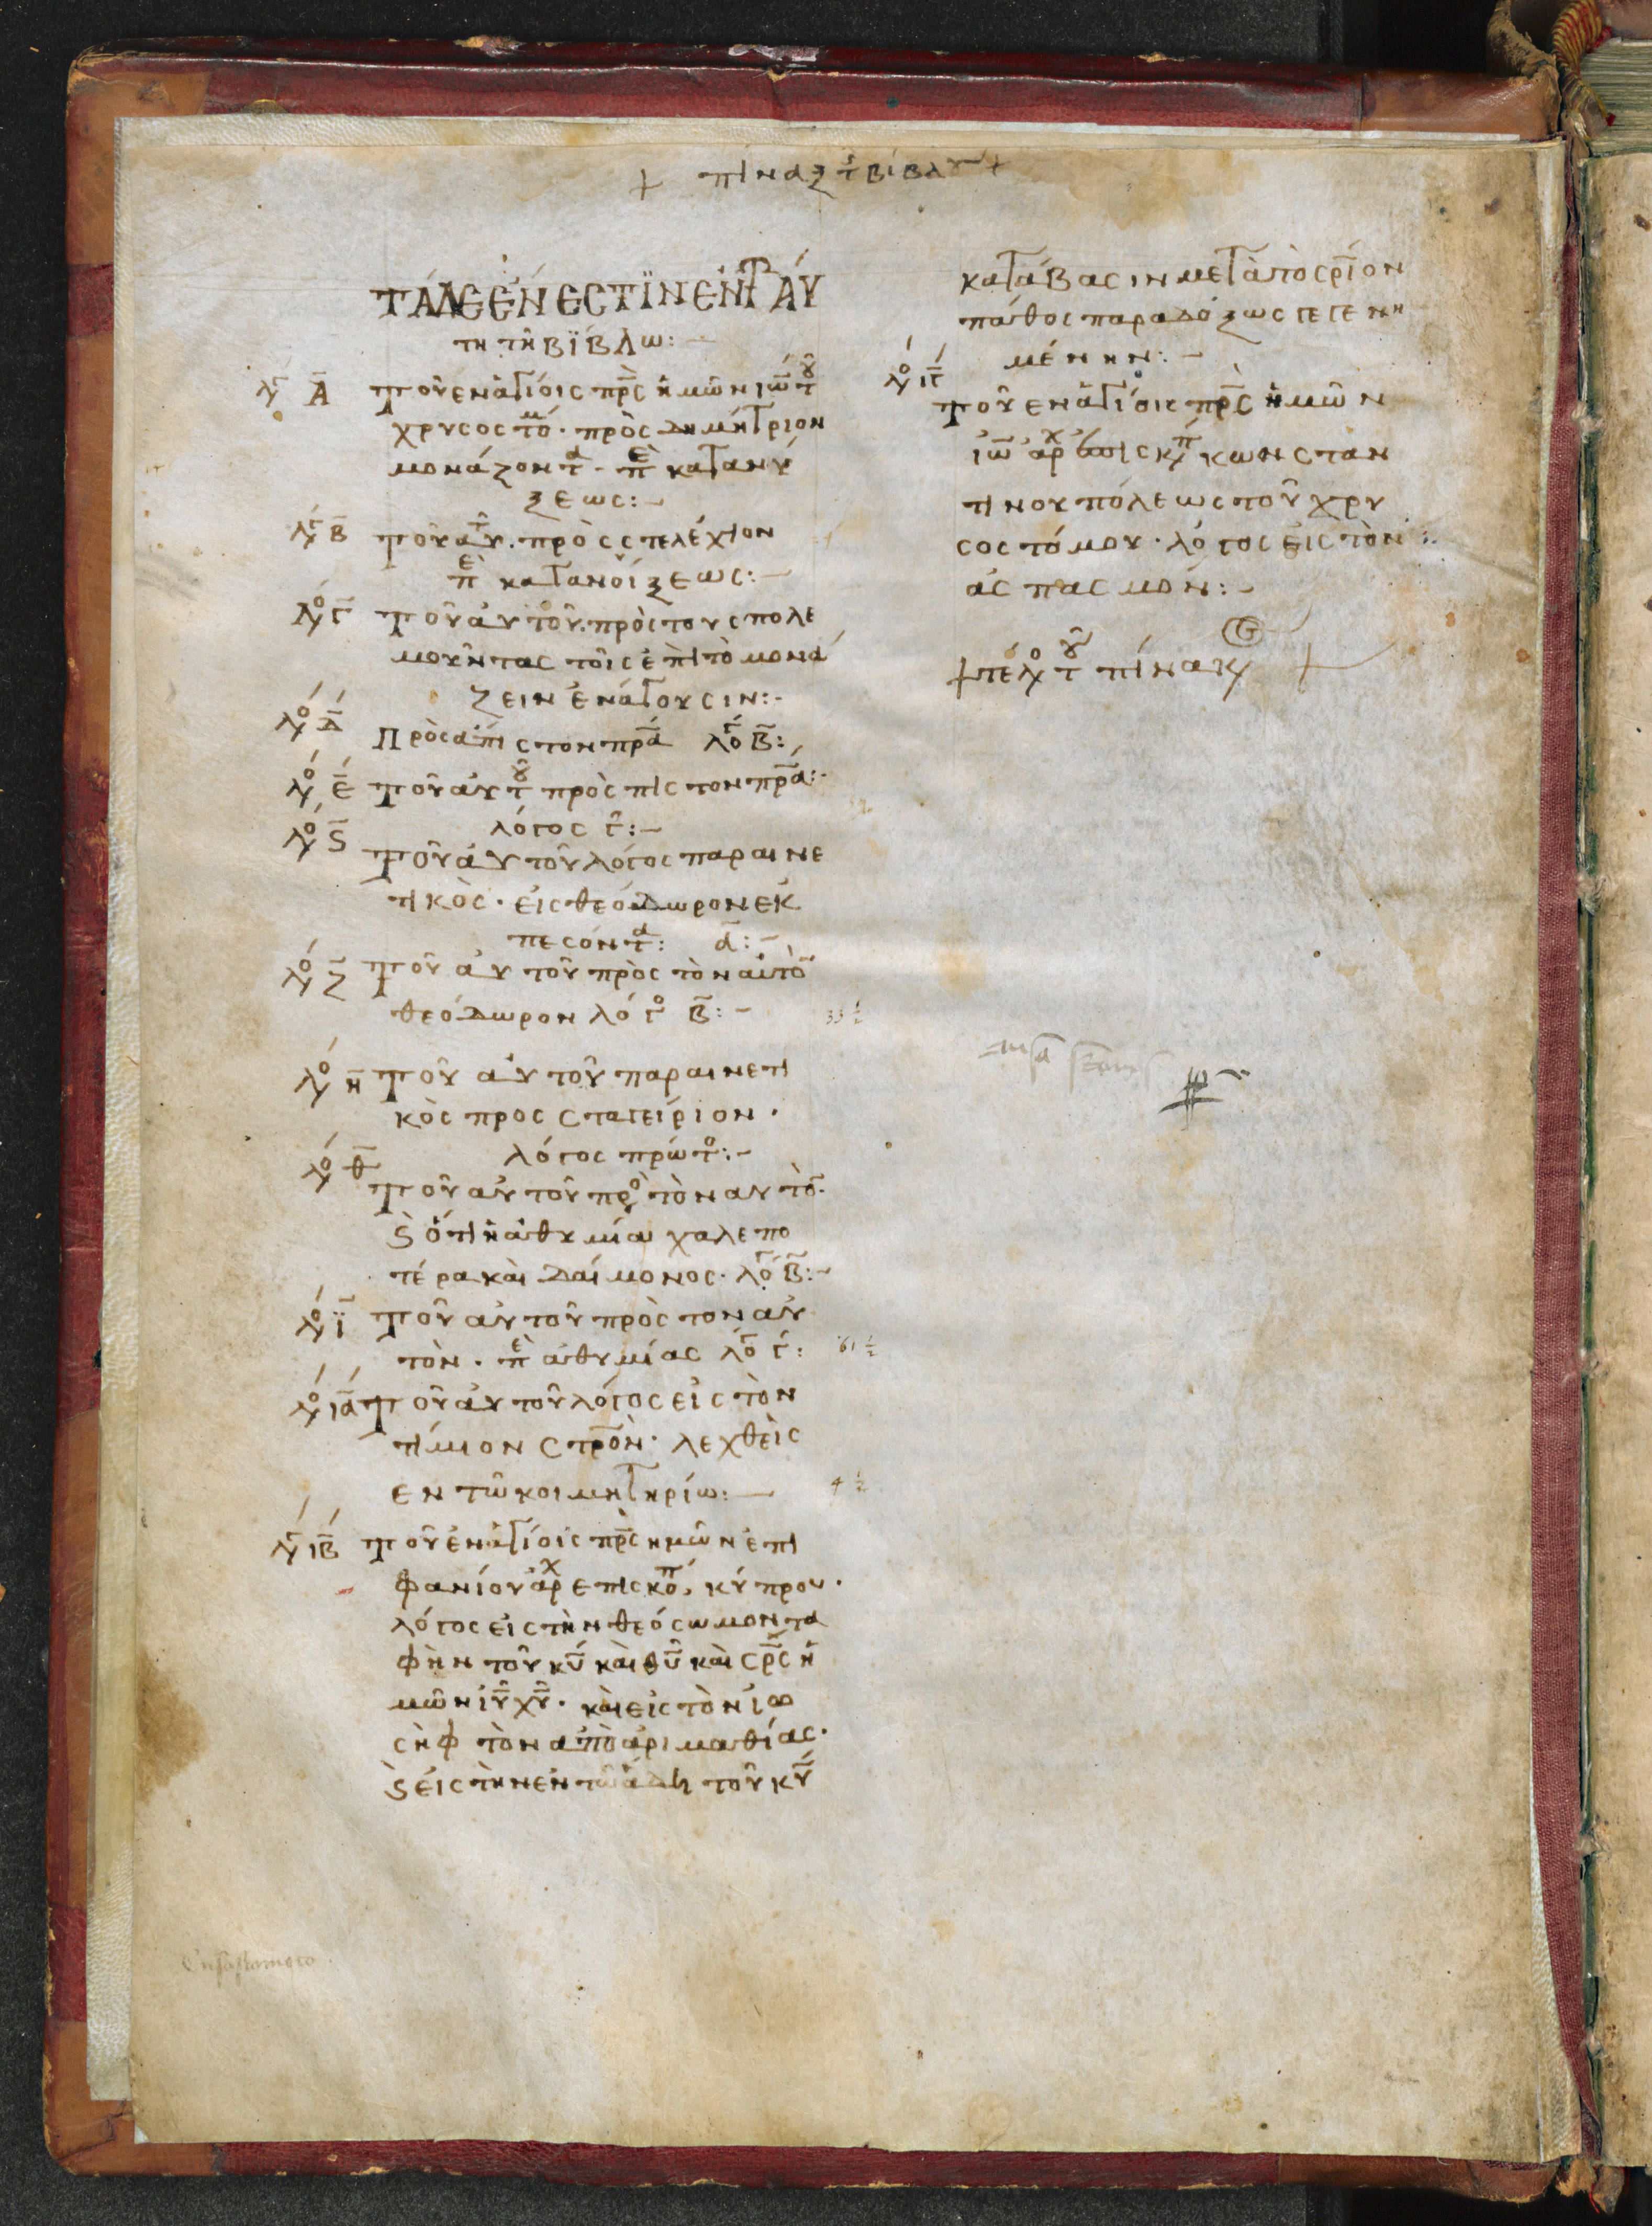 + πίναξ τ βίβλου +
ΤΆΔΕ ΈΝΕCΤΙΝ ΕΝ ΤΑΎ
τη τῆ βΐβλω:—
λό Α τοῦ ἐν ἁγίοις πρς ἡμῶν ιω τοῦ
χρυσοστομ· πρὸς δημήτριον
μονάζοντα· πε κατανύ
ξεως:—
λό Β τοῦ αυτ. πρὸς στελέχιον
πε κατανοίξεως:—
λό Γ τοῦ αὐτοῦ. πρὸς τους πολε
μοῦντας τοῖς ἐπὶ τὸ μονά
ζειν ἐνάγουσιν:—
λό Δ Πρὸς άπιστον πρα λογ Β:
λό Ε τοῦ αὐτοῦ πρὸς πιστον πρα:—
λόγος γ:—
λό ς τοῦ αὐτοῦ λόγος παραινε
τικὸς· εἰς θεόδωρον ἐκ
πεσόντα: α:—
λό Ζ τοῦ αὐτοῦ πρὸς τὸν αὐτὸ
θεόδωρον λόγο Β:—
33 ½
λό Η τοῦ αὐτοῦ παραινετι
κὸς προς σταγείριον.
λόγος πρώτο:—
λό Θ τοῦ αὐτοῦ προ τὸν αυτὸ.
ϛ ὅτι ἡ ἀθυμία χαλεπο
τέρα καὶ δαίμονος· λογ Β:—
λό Ϊ τοῦ αὐτοῦ πρὸς τον αὐ
τὸν. πε ἀθυμίας λογ γ:
61 ½
λό ΙΑ τοῦ αὐτοῦ λόγος εἰς τὸν
τίμιον στρὸν· λεχθεὶς
εν τῶ κοιμητηρίω:—
4 ½
λό ΙΒ τοῦ ἐν ἁγίοις πρς ημῶν ἐπι
φανίου ἀρχ επισκοπ, κύπρου.
λόγος εἰς τὴν θεόσωμον τα
φὴν τοῦ κυ καὶ θυ καὶ σρς ἡ
μῶν ιυ χυ· καὶ εἰς τὸν ἰω
σὴφ τὸν απὸ ἀριμαθίας.
ϛ εἰς τὴν ἐν τῶ άδη τοῦ κυ
κατάβασιν μετὰ το σριον
πάθος παραδόξως γεγενη
μένην:—
λό ΙΓ τοῦ εν ἁγίοις πρς ἡμῶν
ἰω ἀρχ επισκπ κωνσταν
τινουπόλεως τοῦ χρυ
σοστόμου· λόγος εἰς τὸν
ἀσπασμόν:—
+ τέλος τοῦ πίνακ +